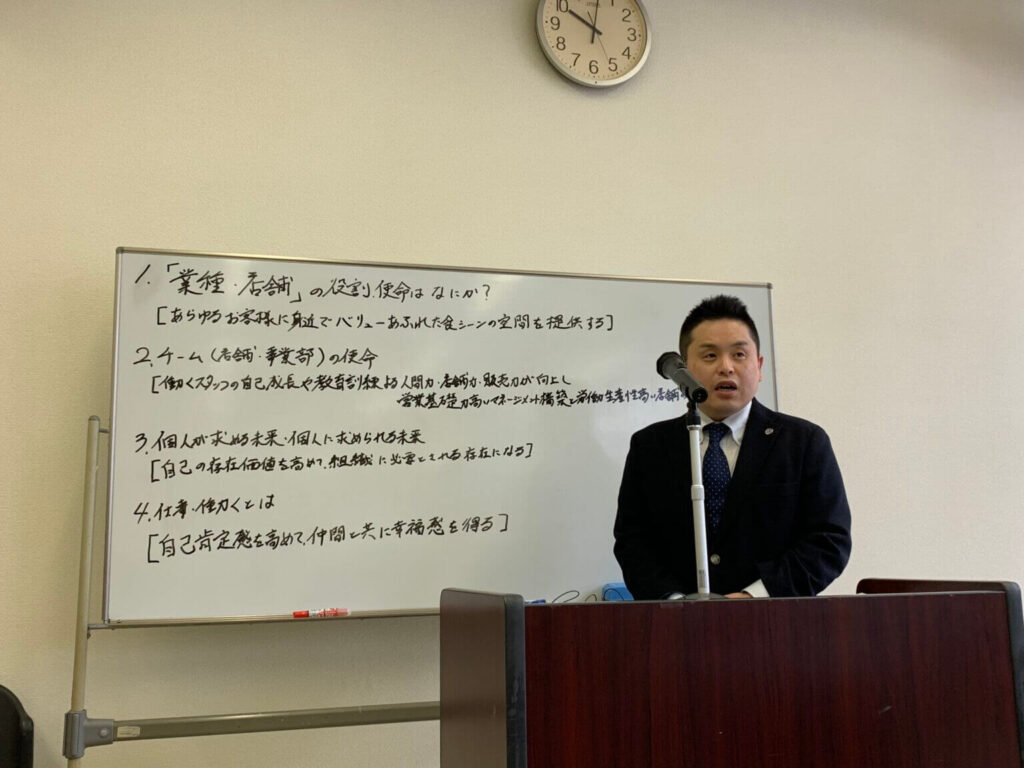 10 2 3 4 5 6 7 8 9
1.「業種・店舗」の役割、使命はなにか?
[あらゆるお客様に身近でバリューあふれた食シーンの空間を提供する]
2.チーム(店舗・事業部)の使命
[働くスタッフの自己成長や教育訓練よる人間力・店舗力・販売力が向上し
営業基礎力高いマネージメント構築と労働生産性高い店舗
3.個人が求める未来・個人に求められる未来
[自己の存在価値を高めて、組織に必要とされる存在になる]
4.仕事・働くとは
[自己肯定感を高めて、仲間と共に幸福感を得る]